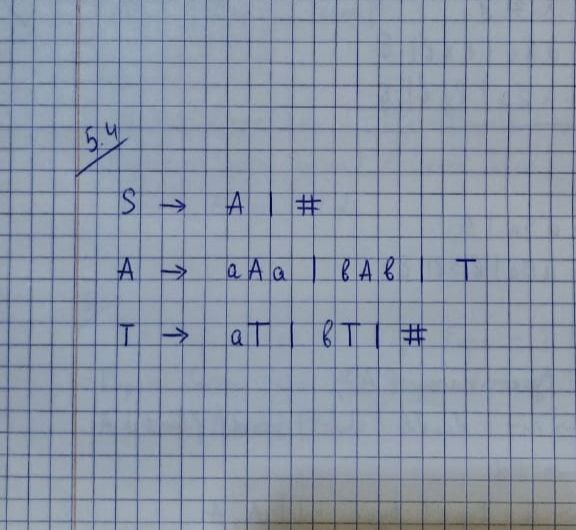 5.4
S → A | #
A → aAa | bAb | T
T → aT | bT | #